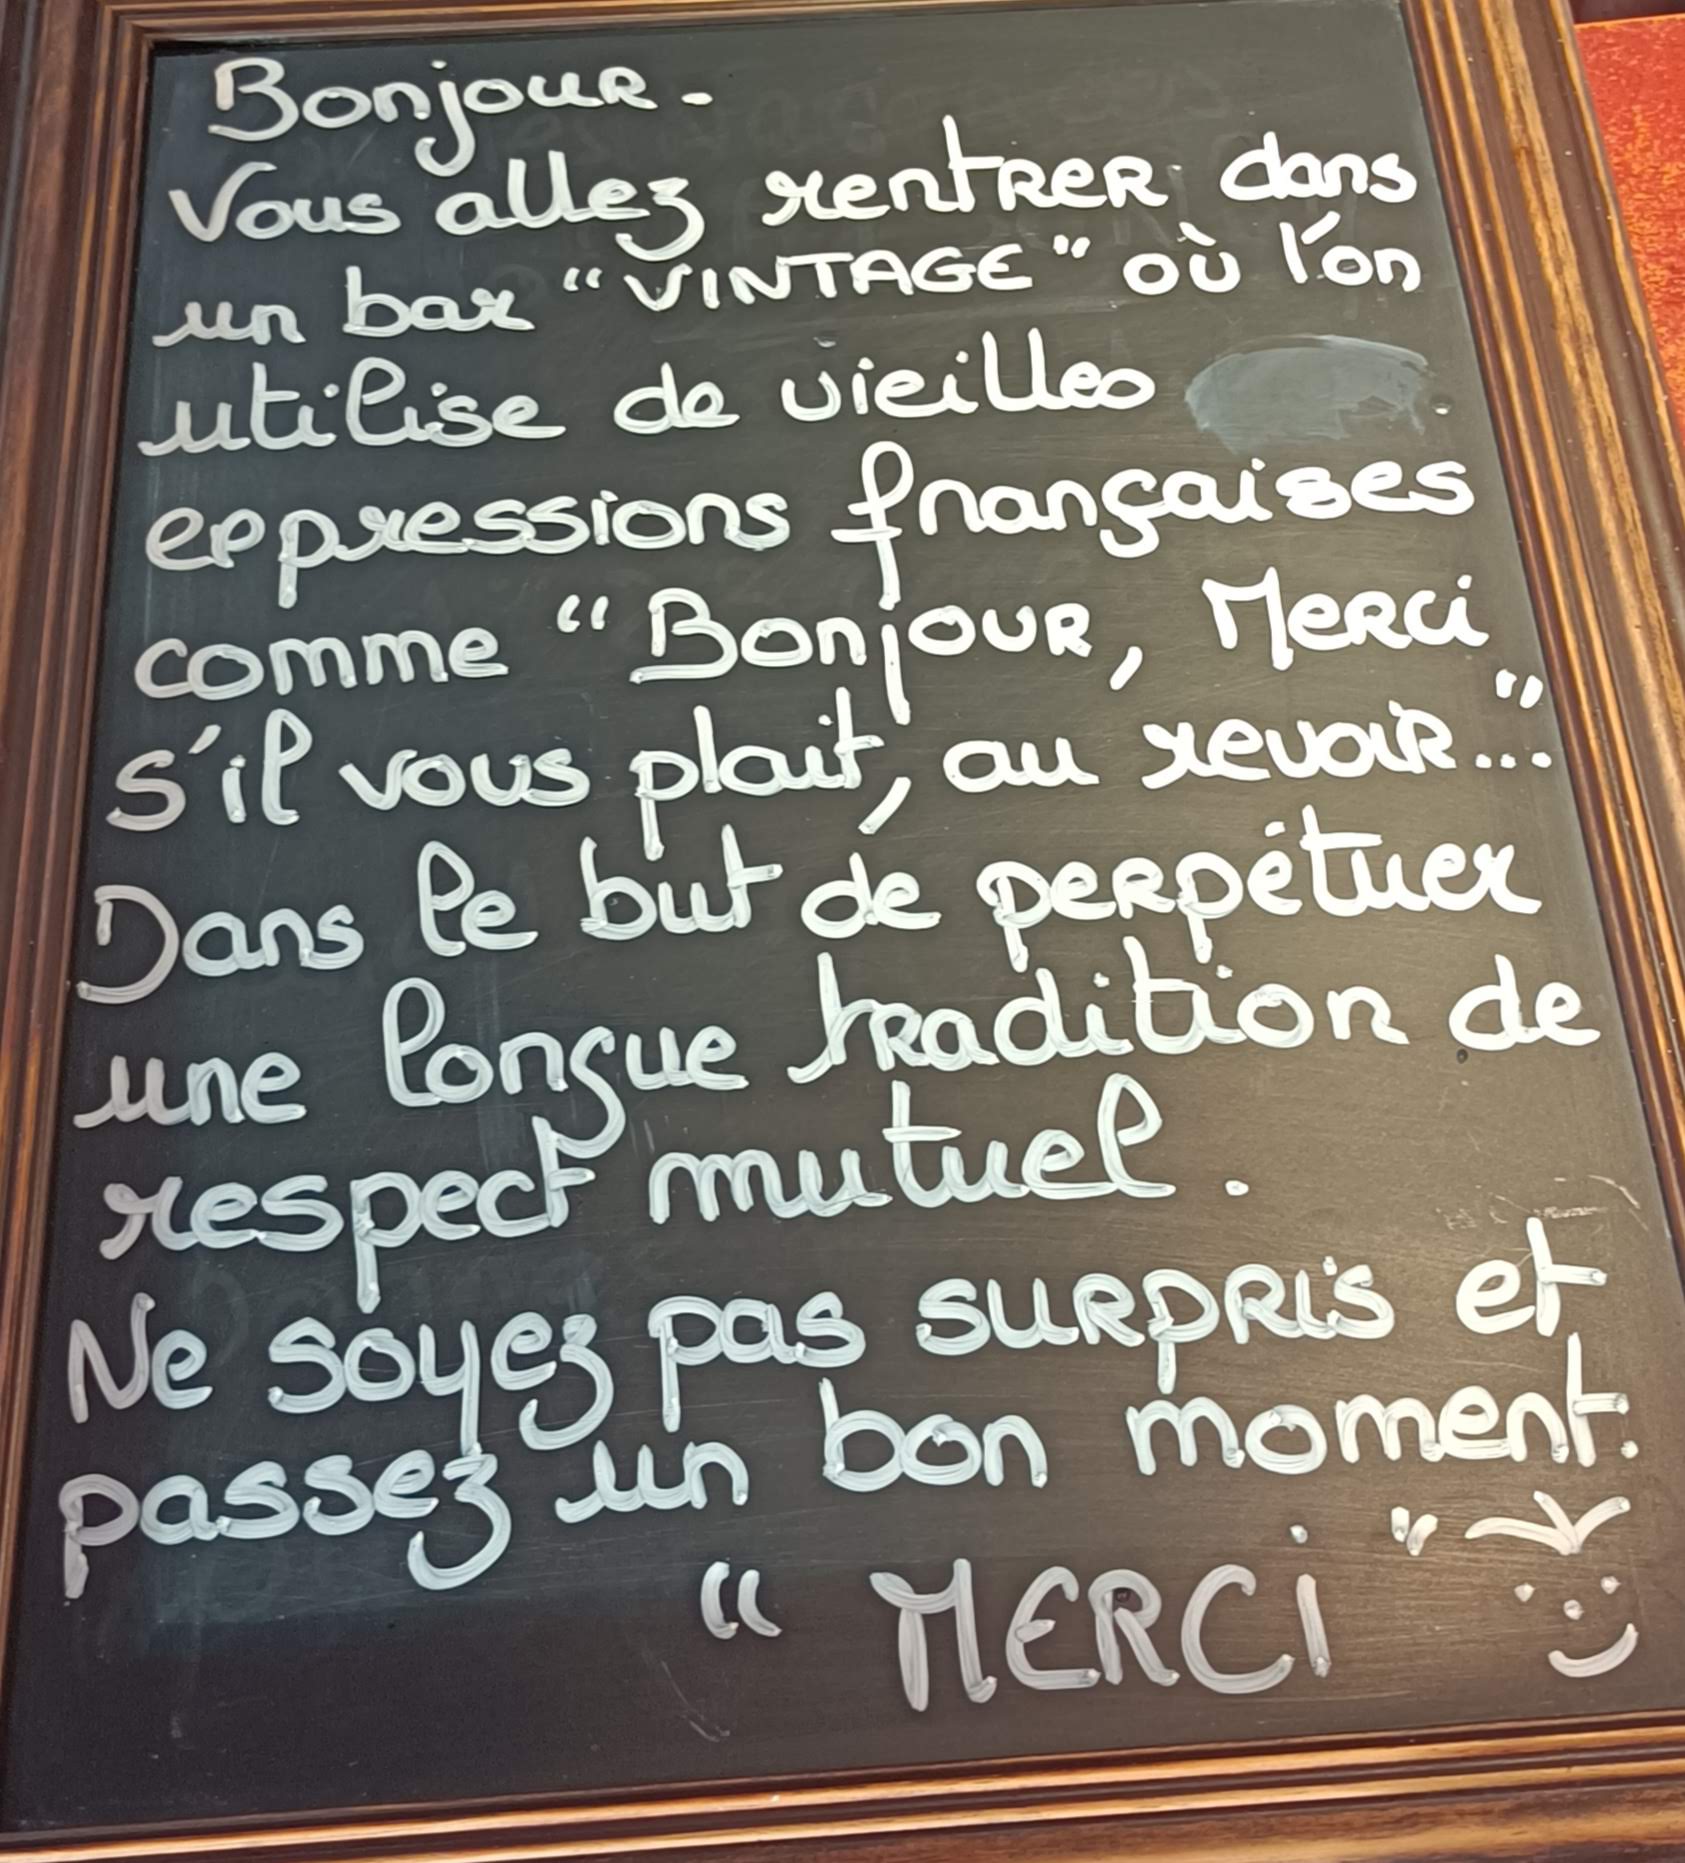 Bonjour.
Vous allez rentrer dans
un bar "VINTAGE" où l'on
utilise de vieilles
expressions françaises
comme "Bonjour, Merci
s'il vous plait, au revoir..."
Dans le but de perpétuer
une longue tradition de
respect mutuel.
Ne soyez pas surpris et
passez un bon moment.
"MERCi"